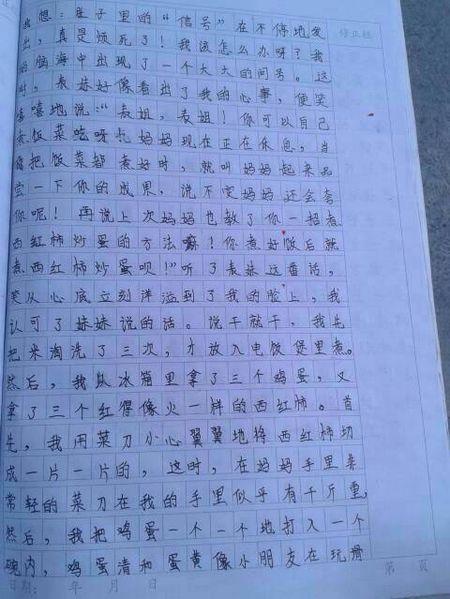 我想：肚子里的“信号”在不停地发
出，真是烦死了！我该怎么办呀？我
的脑海中出现了一个大大的问号。这
时，表妹好像看出了我的心事，便笑
嘻嘻地说：“表姐，表姐！你可以自己
煮饭菜吃呀！妈妈现在正在休息，当
你把饭菜都煮好时，就叫妈妈起来品
尝一下你的成果，说不定妈妈还会夸
你呢！再说上次妈妈也教了你一招煮
西红柿炒蛋的方法嘛！你煮好饭后就
煮西红柿炒蛋呗！”听了表妹这番话，
笑从心底立刻洋溢到了我的脸上，我
认可了妹妹说的话。说干就干，我先
把米淘洗了三次，才放入电饭煲里煮。
然后，我从冰箱里拿了三个鸡蛋，又
拿了三个红得像火一样的西红柿。首
先，我用菜刀小心翼翼地将西红柿切
成一片一片的，这时，在妈妈手里来
常轻的菜刀在我的手里似乎有千斤重，
然后，我把鸡蛋一个一个地打入一个
碗内，鸡蛋清和蛋黄像小朋友在玩滑
日期： 年 月 日 第 页